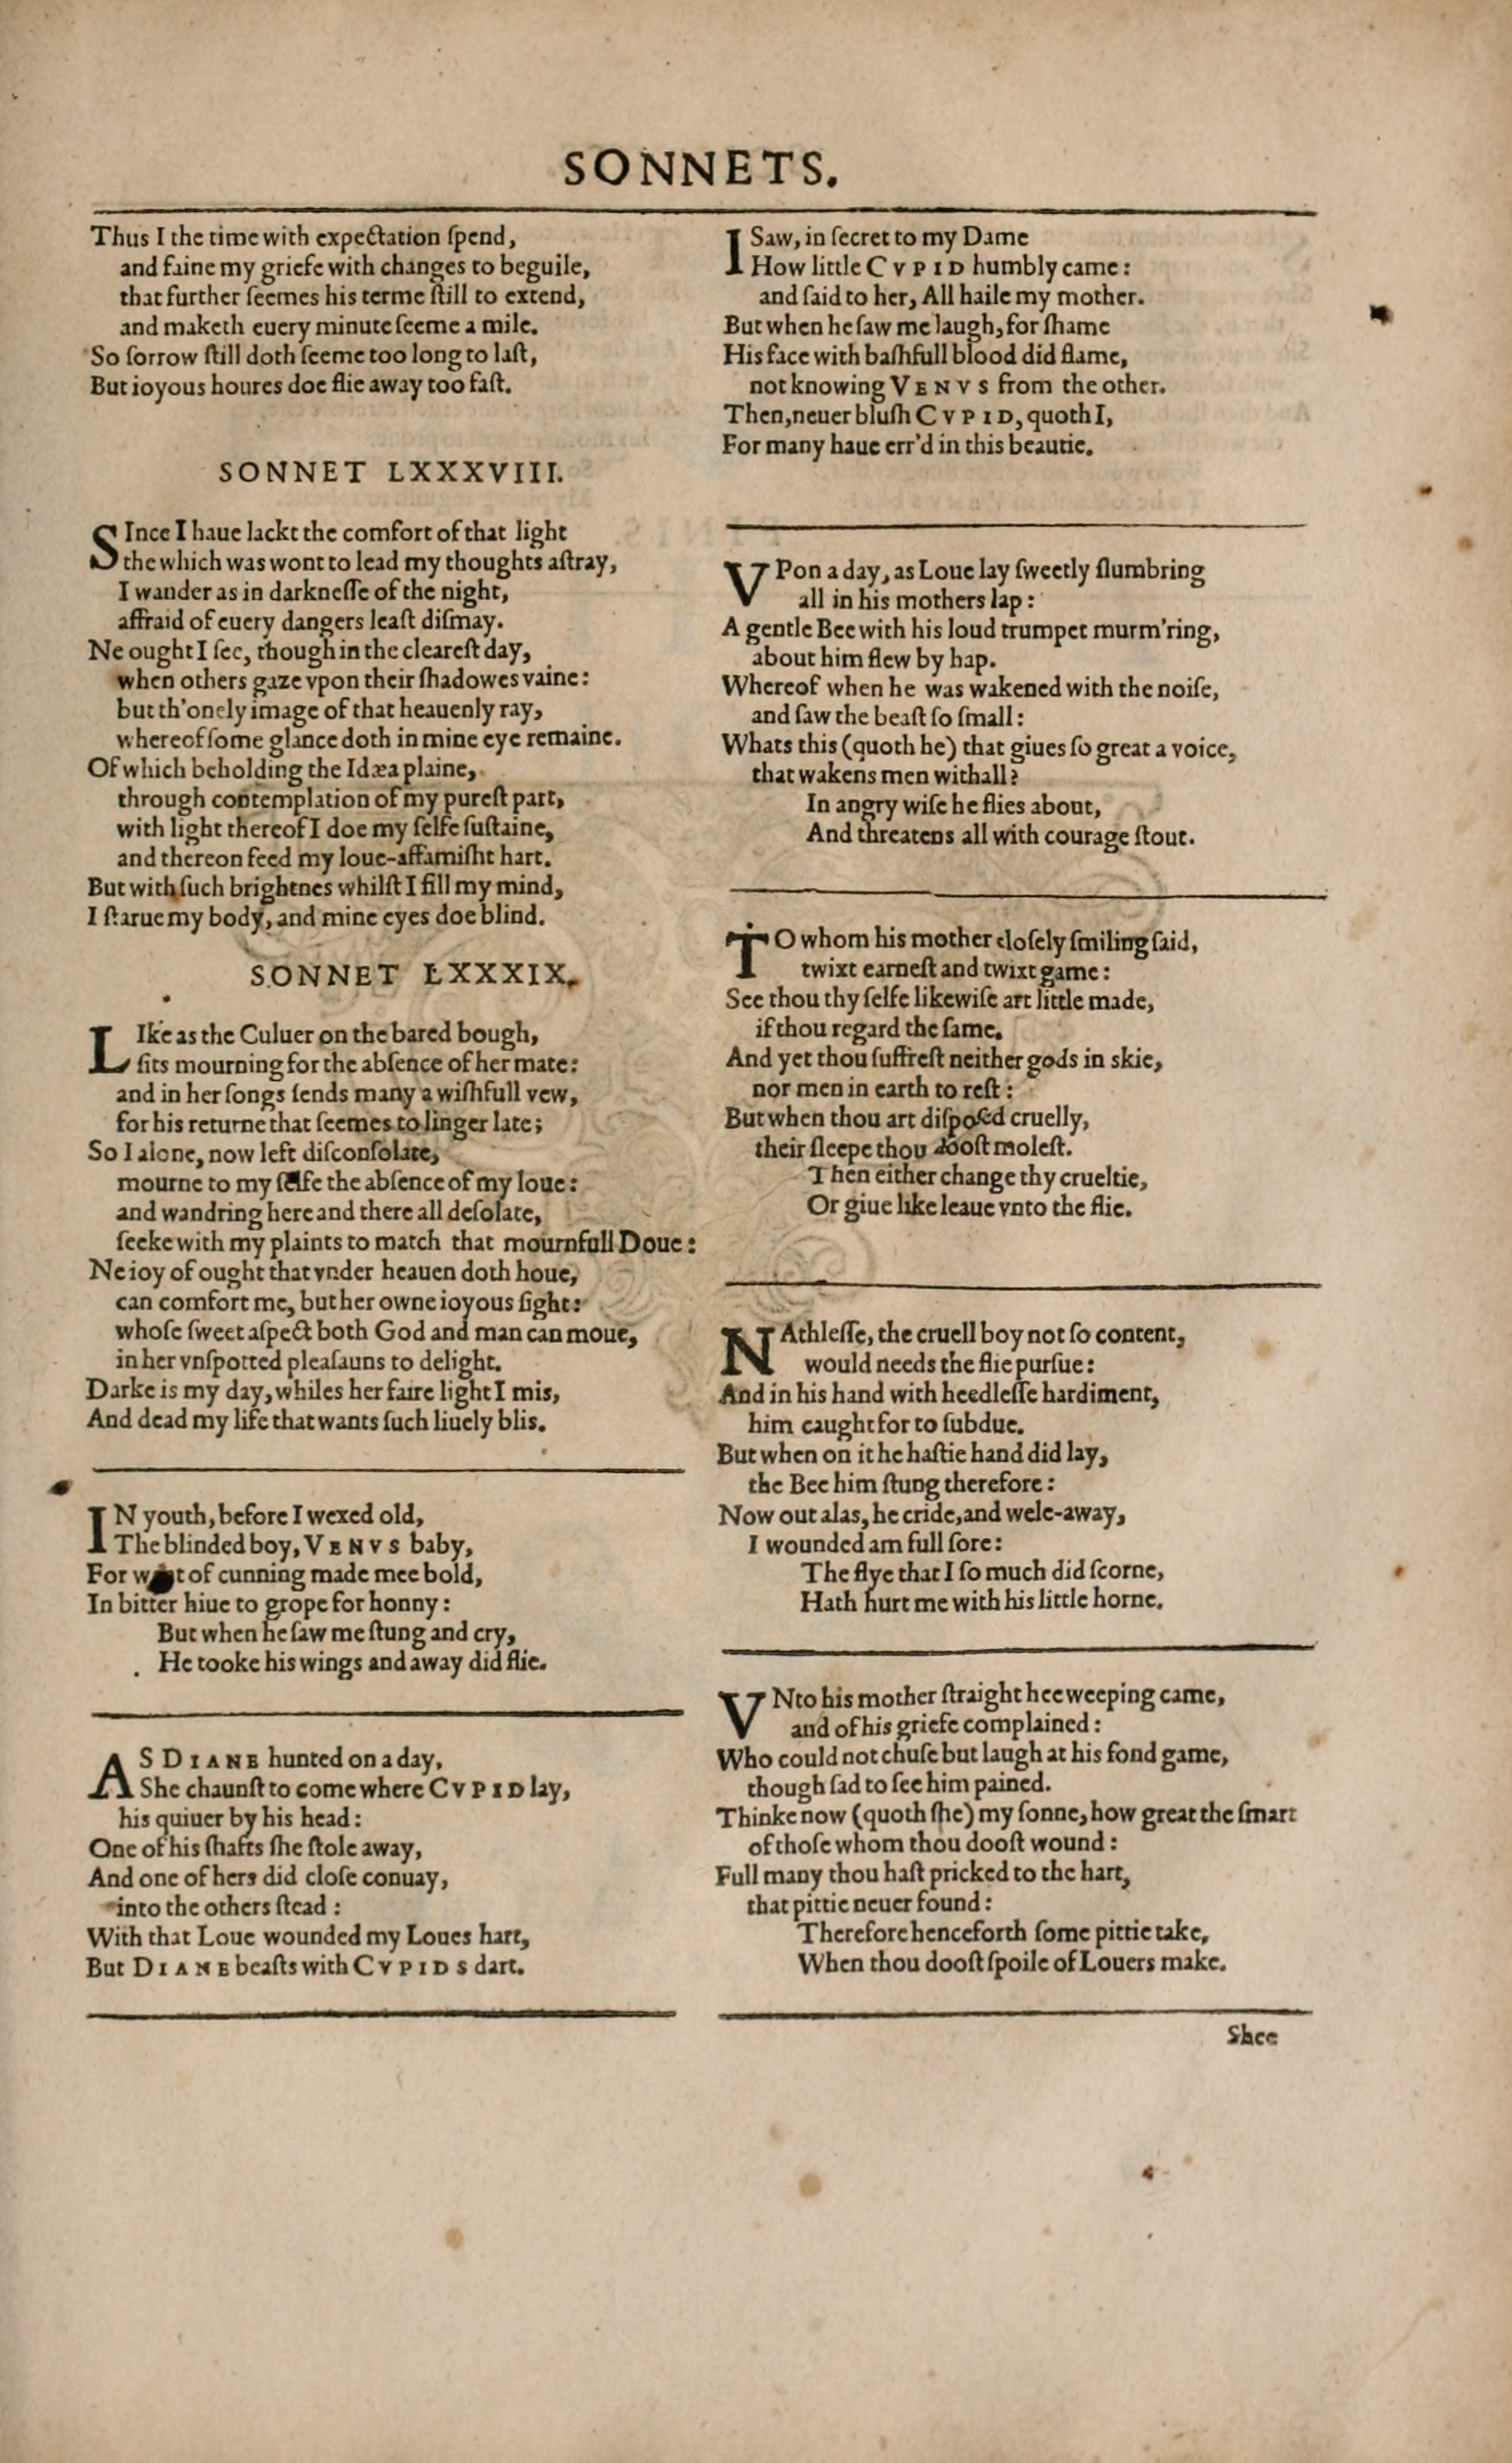 SONNETS.
Thus I the time with expectation ſpend,
and faine my griefe with changes to beguile,
that further ſeemes his terme ſtill to extend,
and maketh euery minute ſeeme a mile.
So ſorrow ſtill doth ſeeme too long to laſt,
But ioyous houres doe flie away too faſt.
SONNET LXXXVIII.
SInce I haue lackt the comfort of that light
the which was wont to lead my thoughts aſtray,
I wander as in darkneſſe of the night,
affraid of euery dangers leaſt diſmay.
Ne ought I ſee, though in the cleareſt day,
when others gaze vpon their ſhadowes vaine:
but th'onely image of that heauenly ray,
whereof ſome glance doth in mine eye remaine.
Of which beholding the Idæa plaine,
through contemplation of my pureſt part,
with light thereof I doe my ſelfe ſuſtaine,
and thereon feed my loue-affamiſht hart.
But with ſuch brightnes whilſt I fill my mind,
I ſtarue my body, and mine eyes doe blind.
SONNET LXXXIX.
LIke as the Culuer on the bared bough,
ſits mourning for the abſence of her mate:
and in her ſongs ſends many a wiſhfull vew,
for his returne that ſeemes to linger late;
So I alone, now left diſconſolate,
mourne to my ſelfe the abſence of my loue:
and wandring here and there all deſolate,
ſeeke with my plaints to match that mournfull Doue:
Ne ioy of ought that vnder heauen doth houe,
can comfort me, but her owne ioyous ſight:
whoſe ſweet aſpect both God and man can moue,
in her vnſpotted pleaſauns to delight.
Darke is my day, whiles her faire light I mis,
And dead my life that wants ſuch liuely blis.
IN youth, before I wexed old,
The blinded boy, VENVS baby,
For want of cunning made mee bold,
In bitter hiue to grope for honny:
But when he ſaw me ſtung and cry,
He tooke his wings and away did flie.
AS DIANE hunted on a day,
She chaunſt to come where CVPID lay,
his quiuer by his head:
One of his ſhafts ſhe ſtole away,
And one of hers did cloſe conuay,
into the others ſtead:
With that Loue wounded my Loues hart,
But DIANE beaſts with CVPIDS dart.
I Saw, in ſecret to my Dame
How little CVPID humbly came:
and ſaid to her, All haile my mother.
But when he ſaw me laugh, for ſhame
His face with baſhfull blood did flame,
not knowing VENVS from the other.
Then, neuer bluſh CVPID, quoth I,
For many haue err'd in this beautie.
VPon a day, as Loue lay ſweetly ſlumbring
all in his mothers lap:
A gentle Bee with his loud trumpet murm'ring,
about him flew by hap.
Whereof when he was wakened with the noiſe,
and ſaw the beaſt ſo ſmall:
Whats this (quoth he) that giues ſo great a voice,
that wakens men withall?
In angry wiſe he flies about,
And threatens all with courage ſtout.
TO whom his mother cloſely ſmiling ſaid,
twixt earneſt and twixt game:
See thou thy ſelfe likewiſe art little made,
if thou regard the ſame.
And yet thou ſuffreſt neither gods in skie,
nor men in earth to reſt:
But when thou art diſpoſed cruelly,
their ſleepe thou dooſt moleſt.
Then either change thy crueltie,
Or giue like leaue vnto the flie.
NAthleſſe, the cruell boy not ſo content,
would needs the flie purſue:
And in his hand with heedleſſe hardiment,
him caught for to ſubdue.
But when on it he haſtie hand did lay,
the Bee him ſtung therefore:
Now out alas, he cride, and wele-away,
I wounded am full ſore:
The flye that I ſo much did ſcorne,
Hath hurt me with his little horne.
VNto his mother ſtraight hee weeping came,
and of his griefe complained:
Who could not chuſe but laugh at his fond game,
though ſad to ſee him pained.
Thinke now (quoth ſhe) my ſonne, how great the ſmart
of thoſe whom thou dooſt wound:
Full many thou haſt pricked to the hart,
that pittie neuer found:
Therefore henceforth ſome pittie take,
When thou dooſt ſpoile of Louers make.
Shee